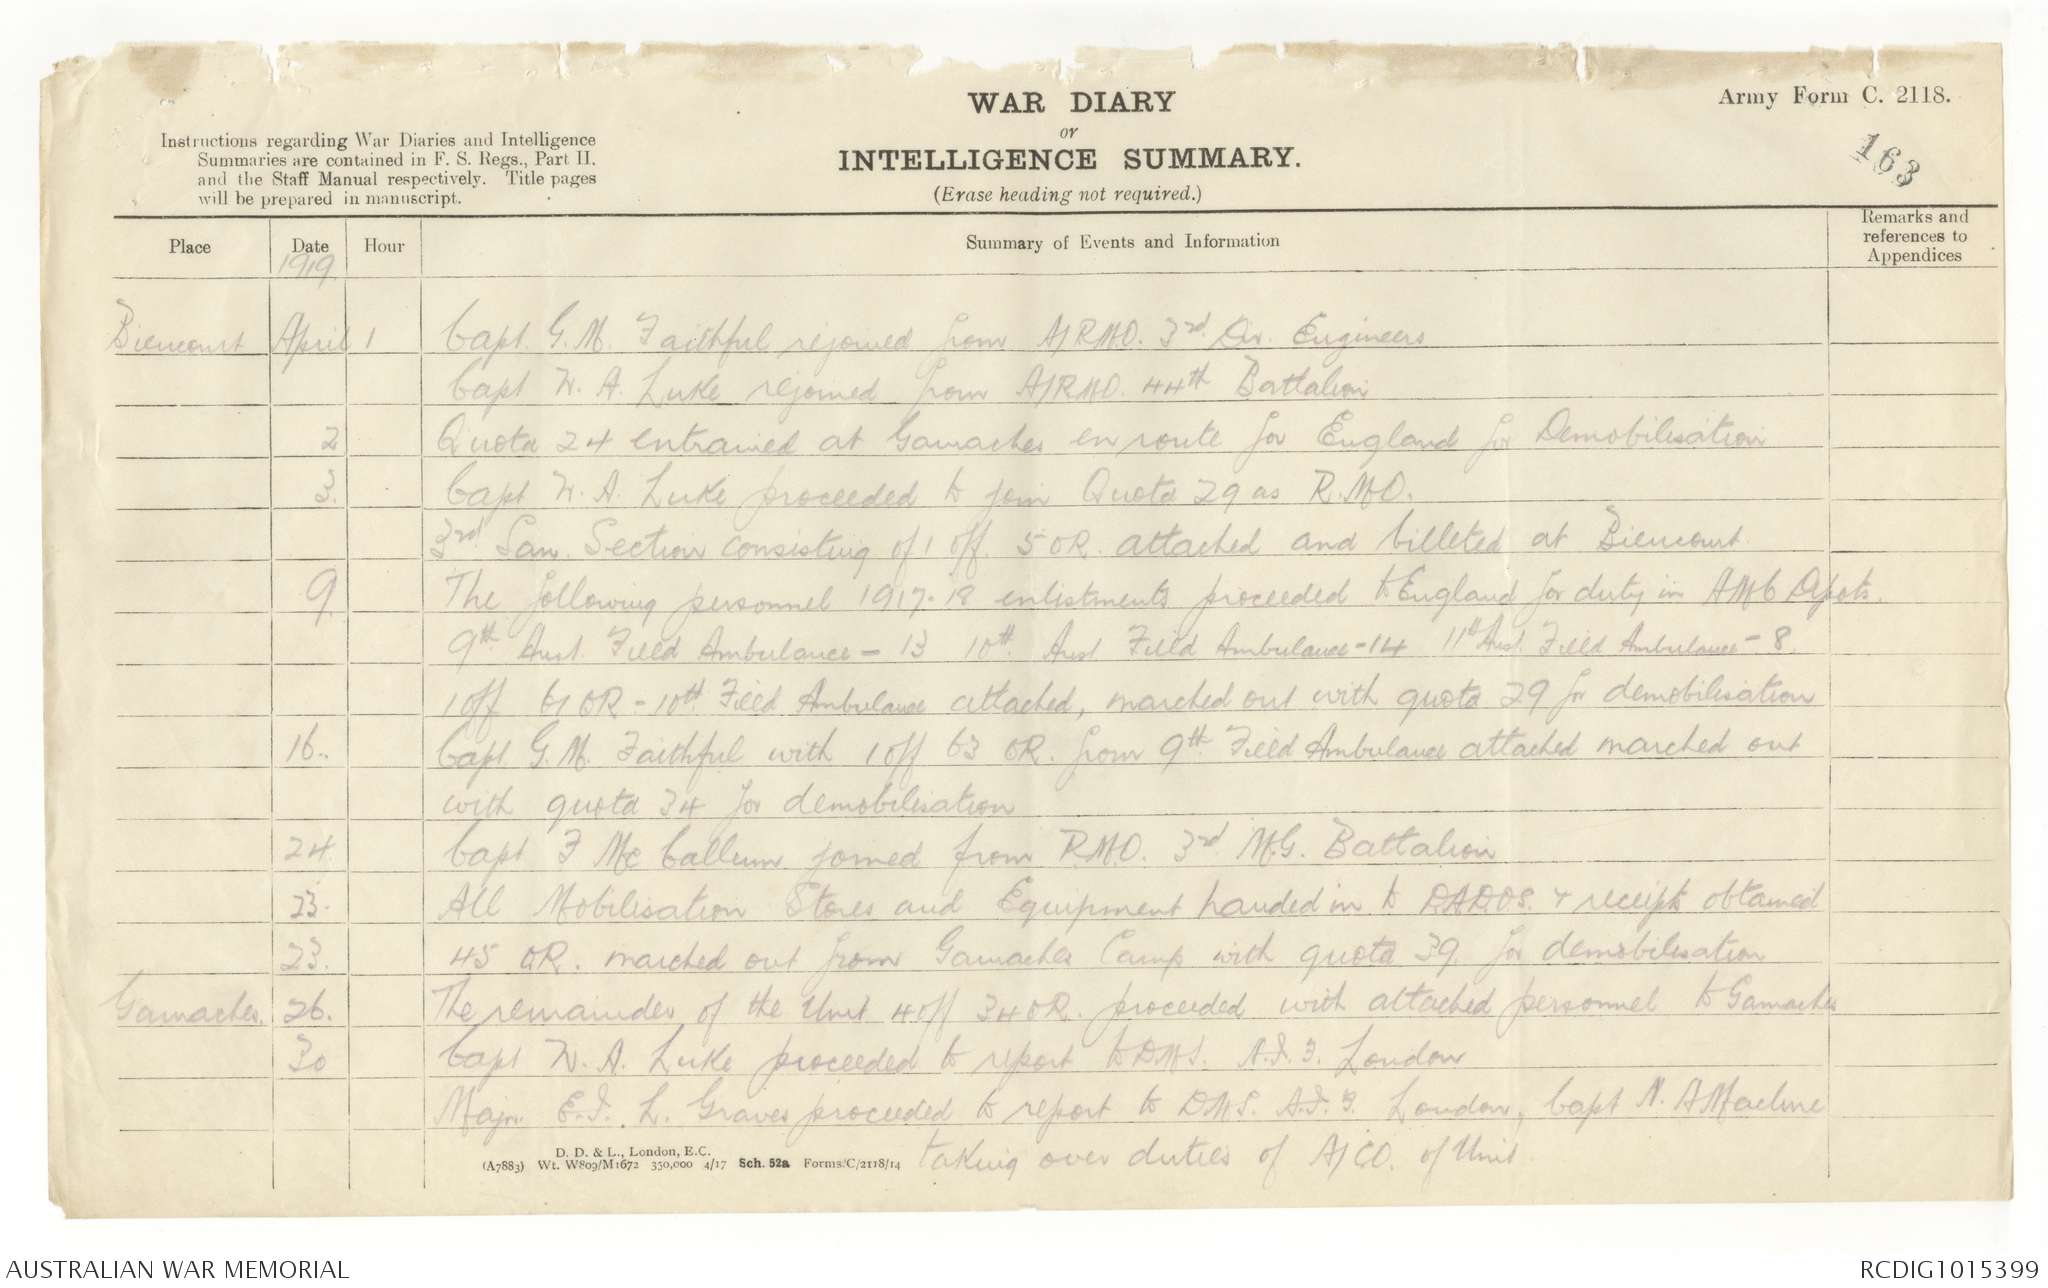 WAR DIARY
or
INTELLIGENCE SUMMARY.
(Erase heading not required.)
Army Form C. 2118.
163
Instructions regarding War Diaries and Intelligence
Summaries are contained in F. S. Regs., Part II.
and the Staff Manual respectively. Title pages
will be prepared in manuscript.
Place Date Hour Summary of Events and Information Remarks and references to Appendices
1919
Biencourt April 1 Capt. G. M. Faithful rejoined from A/RMO. 3rd Div. Engineers
Capt W. A. Luke rejoined from A/RMO. 44th Battalion
2 Quota 24 entrained at Gamaches en route for England for Demobilisation
3. Capt W. A. Luke proceeded to join Quota 29 as R.M.O.
3rd San. Section consisting of 1 off. 5 OR. attached and billeted at Biencourt.
9. The following personnel 1917-18 enlistments proceeded to England for duty in AMC Depots.
9th Aust. Field Ambulance - 13 10th Aust Field Ambulance - 14 11th Aust. Field Ambulance - 8.
1 off 61 OR - 10th Field Ambulance attached, marched out with quota 29 for demobilisation
16.. Capt G. M. Faithful with 1 off 63 OR. from 9th Field Ambulance attached marched out
with quota 34 for demobilisation
24. Capt F McCallum joined from RMO. 3rd M.G. Battalion
23. All Mobilisation Stores and Equipment handed in to D.A.D.O.S. & receipts obtained
23. 45 OR. marched out from Gamaches Camp with quota 39 for demobilisation
Gamaches. 26. The remainder of the Unit 4 off 34 OR. proceeded with attached personnel to Gamaches
30 Capt W. A. Luke proceeded to report to DMS. A.I.F. London
Major. E. J. L. Graves proceeded to report to DMS. A.I.F. London, Capt N. A
taking over duties of A/CO. of Unit.
D. D. & L., London, E.C.
(A7883) Wt. W809/M1672 350,000 4/17 Sch. 52a Forms/C/2118/14
AUSTRALIAN WAR MEMORIAL
RCDIG1015399